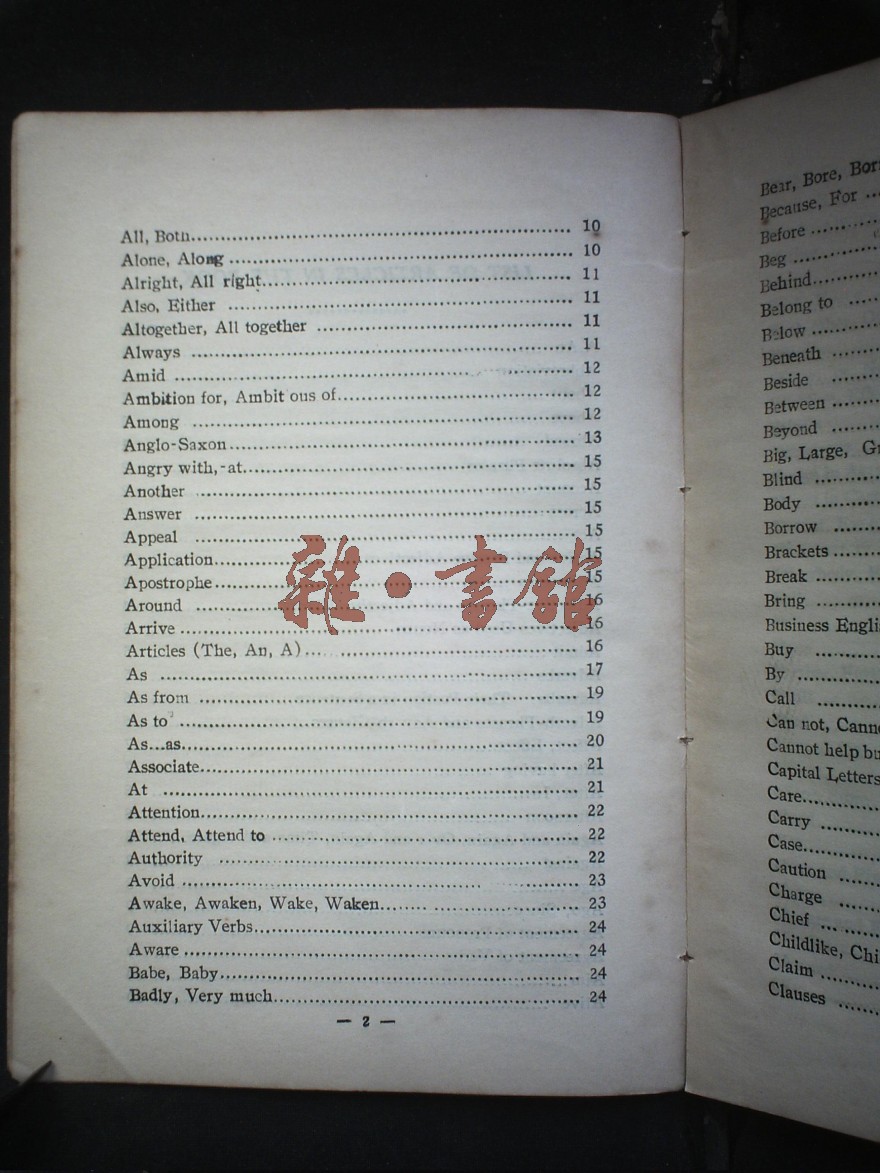 All, Both........................................ 10
Alone, Along........................................ 10
Alright, All right........................................ 11
Also, Either........................................ 11
Altogether, All together........................................ 11
Always........................................ 11
Amid........................................ 12
Ambition for, Ambit ous of........................................ 12
Among........................................ 12
Anglo-Saxon........................................ 13
Angry with,-at........................................ 15
Another........................................ 15
Answer........................................ 15
Appeal........................................ 15
Application........................................ 15
Apostrophe........................................ 15
Around........................................ 16
Arrive........................................ 16
Articles (The, An, A)........................................ 16
As........................................ 17
As from........................................ 19
As to........................................ 19
As...as........................................ 20
Associate........................................ 21
At........................................ 21
Attention........................................ 22
Attend, Attend to........................................ 22
Authority........................................ 22
Avoid........................................ 23
Awake, Awaken, Wake, Waken........................................ 23
Auxiliary Verbs........................................ 24
Aware........................................ 24
Babe, Baby........................................ 24
Badly, Very much........................................ 24
— 2 —
雜·書館
Bear, Bore,
Because, For
Before
Beg
Behind
Belong to
Below
Beneath
Beside
Between
Beyond
Big, Large,
Blind
Body
Borrow
Brackets
Break
Bring
Business
Buy
By
Call
Can not,
Cannot help
Capital Letters
Care
Carry
Case
Caution
Charge
Chief
Childlike,
Claim
Clauses